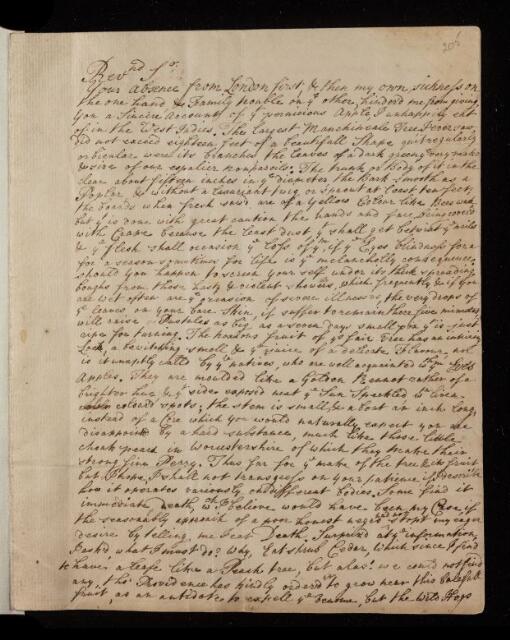 205
Revnd Sr.
Your absence from London first, & then my own sickness on
the one hand & Family trouble on ye other, hinder'd me from giving
You a Sincere Account of ye pernicious Apple I unhappily eat
of in the West Indies. The largest Manchineale Tree I ever saw,
did not exceed eighteen feet of a beautifull Shape quite regularly
orbicular were its branches the leaves of a dark green, very
& size of our
clear about fifteen inches in ye diameter the Bark smooth as a
Poplar & without a luxuriant twig or sprout at least ten feet,
the boards when fresh saw'd are of a Yellow Colour like
but ye is done with great caution the hands and face being cover'd
with Crape because the least dust yt shall get betwixt ye nails
& ye flesh shall occasion ye loss of ym, if ye Eyes blindness for a
for a season & sometimes for life is ye melancholly consequence.
should you happen to screen your self under its thick spreading
boughs from those hasty & violent showers, which frequently & if you
are wet often are ye occasion of severe illness, the very drops of
ye leaves on your bare Skin, if suffer'd to remain there five minutes
will raise Pustules as big as a seven days small pox yt is just
ripe for turning. The handsom fruit of ys fair Tree has an inticing
Look, a bewitching smell & ye juice of a delicate Flavour, nor
is it unaptly call'd by ye natives, who are well acquainted wth ym Love
Apples. They are moulded like a Golden Rennet rather of a
brighter hue & ye side exposed next ye Sun Speckled wth
colour'd spots; the stem is small, & about an inch long,
instead of a Core which you would naturally expect you are
disappointed by a hard substance, much like those little
choak pears in Worcestershire of which they make their
strong fine Perry. Thus far for ye make of the tree & its fruit
but I hope I shall not transgress on your patience if I describe
how it operates variously on different bodies. Some find it
immediate death, wch I believe would have been my Case, if
the seasonable approach of a poor honest negro had not stopt my eager
desire by telling me I eat Death. Surprized at ye information,
I ask'd what I must do? Why, Eat shrub Cedar, which since I find
to have a leafe like a Peach tree, but alas! we could not find
any, tho' Providence has kindly order'd to grow near this balefull
fruit, as an antidote to expell ye venome, but the Wild Hogs